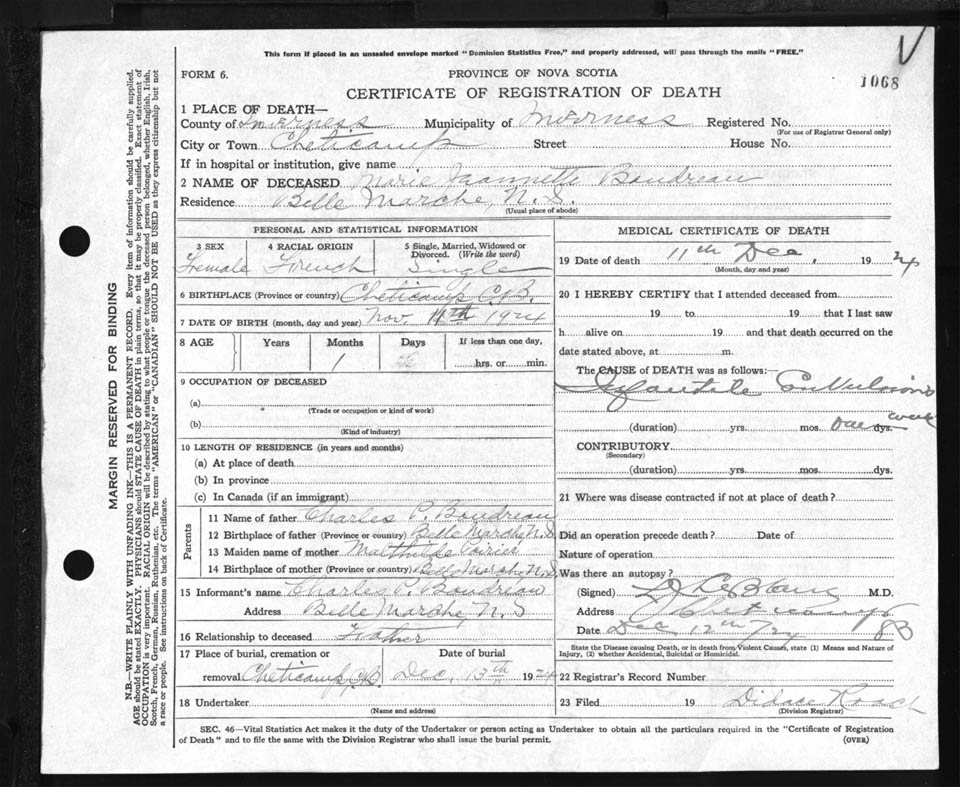 This form if placed in an unsealed envelope marked "Dominion Statistics Free," and properly addressed, will pass through the mails "FREE."
FORM 6.
PROVINCE OF NOVA SCOTIA
1068
CERTIFICATE OF REGISTRATION OF DEATH
1 PLACE OF DEATH—
County of Inverness Municipality of Inverness Registered No.
(For use of Registrar General only)
City or Town Cheticamp Street House No.
If in hospital or institution, give name
2 NAME OF DECEASED Marie Jeannette Boudreau
Residence Belle Marche, N.S.
(Usual place of abode)
PERSONAL AND STATISTICAL INFORMATION
3 SEX 4 RACIAL ORIGIN 5 Single, Married, Widowed or Divorced. (Write the word)
Female French Single
6 BIRTHPLACE (Province or country) Cheticamp C.B.
7 DATE OF BIRTH (month, day and year) Nov. 11th 1924
8 AGE Years Months Days If less than one day,
1 hrs. or min.
9 OCCUPATION OF DECEASED
(a)
(Trade or occupation or kind of work)
(b)
(Kind of industry)
10 LENGTH OF RESIDENCE (in years and months)
(a) At place of death
(b) In province
(c) In Canada (if an immigrant)
Parents
11 Name of father Charles P. Boudreau
12 Birthplace of father (Province or country) Belle Marche, N.S
13 Maiden name of mother Poirier
14 Birthplace of mother (Province or country) Belle Marche, N.S
15 Informant's name Charles P. Boudreau
Address Belle Marche, N.S
16 Relationship to deceased Father
17 Place of burial, cremation or removal Cheticamp, C.B. Date of burial Dec. 13th 1924
18 Undertaker
(Name and address)
MEDICAL CERTIFICATE OF DEATH
19 Date of death 11th Dec, 1924
(Month, day and year)
20 I HEREBY CERTIFY that I attended deceased from
19 to 19 that I last saw
h alive on 19 and that death occurred on the
date stated above, at m.
The CAUSE of DEATH was as follows:—
Infantile Convulsions
(duration) yrs. mos. One dys. week
CONTRIBUTORY.
(Secondary)
(duration) yrs. mos. dys.
21 Where was disease contracted if not at place of death?
Did an operation precede death? Date of
Nature of operation
Was there an autopsy?
(Signed) LeBlanc M.D.
Address Cheticamp CB
Date Dec 12th /24
State the Disease causing Death, or in death from Violent Causes, state (1) Means and Nature of Injury, (2) whether Accidental, Suicidal or Homicidal.
22 Registrar's Record Number
23 Filed 19 Didace Roach
(Division Registrar)
SEC. 46—Vital Statistics Act makes it the duty of the Undertaker or person acting as Undertaker to obtain all the particulars required in the "Certificate of Registration
of Death" and to file the same with the Division Registrar who shall issue the burial permit. (OVER)
MARGIN RESERVED FOR BINDING
N.B.—WRITE PLAINLY WITH UNFADING INK—THIS IS A PERMANENT RECORD. Every item of information should be carefully supplied.
AGE should be stated EXACTLY. PHYSICIANS should STATE CAUSE OF DEATH in plain terms, so that it may be properly classified. Exact statement of
OCCUPATION is very important. RACIAL ORIGIN will be described by stating to what people or tongue the deceased person belonged, whether English, Irish,
Scotch, French, German, Russian, Ruthenian, etc. The terms "AMERICAN" or "CANADIAN" SHOULD NOT BE USED as they express citizenship but not
a race or people. See instructions on back of Certificate.